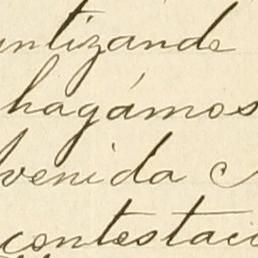 intizande
hagámos
venida
contestaci